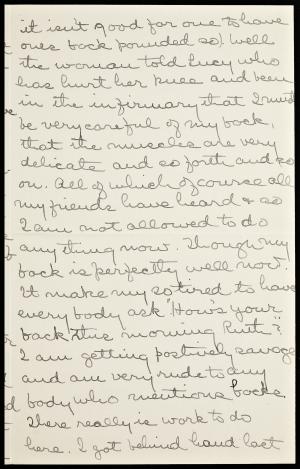 it isn't good for one to have
ones back pounded so). Well
the woman told Lucy who
has hurt her knee and been
in the infirmary that I must
be very careful of my back,
that the muscles are very
delicate and so forth and so
on. All of which of course all
my friends have heard & so
I am not allowed to do
anything now. Though my
back is perfectly well now.
It make my so tired to have
every body ask "How's your
back this morning Ruth"?
I am getting postively savage
and am very rude to any
body who mentions backs.
There really is work to do
here. I got behind hand last